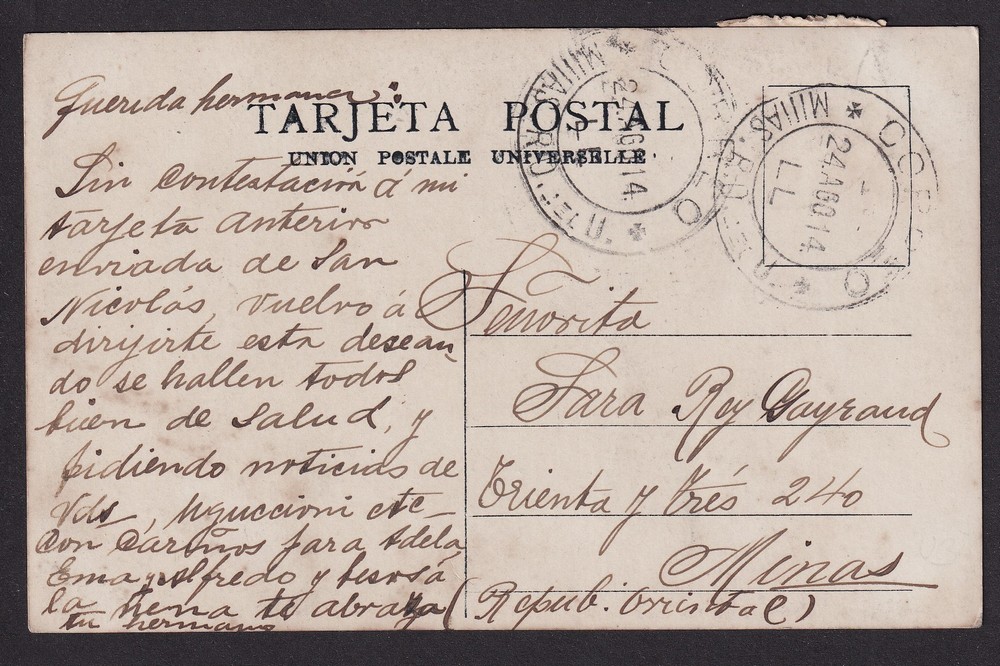 TARJETA POSTAL
UNION POSTALE UNIVERSELLE
Querida hermana:
Sin contestación á mi
tarjeta anterior
enviada de San
Nicolás, vuelvo á
dirijirte esta desean-
do se hallen todos
bien de salud, y
pidiendo noticias de
Vds, Uguccioni etc
con cariños para Adela,
Ema y Alfredo y besos á
la nena te abraza
tu hermano
Señorita
Sara Rey Gayraud
Treinta y Trés 240
Minas
(Repub. Oriental)
CORREO
MINAS
24 AGO 14
CORREO
MINAS
24 AGO 14